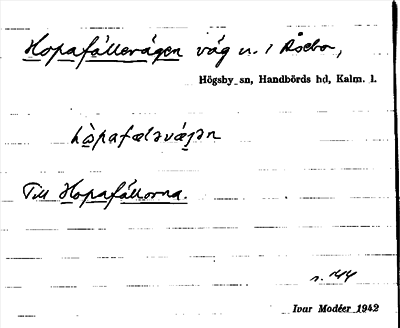 Hopafällevägen väg n. i Åsebo,
Högsby sn, Handbörds hd, Kalm. l.
hòpafælavá̱gən
Till Hopafällorna.
s. 144
Ivar Modéer 1942